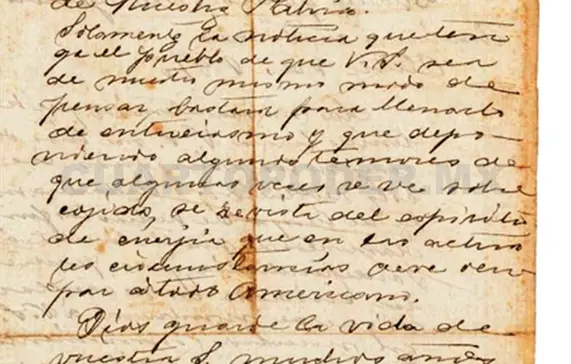 de Nuestra Patria.
Solamente la noticia que ten
ga el pueblo de que V.S. sea
de nuestro mismo modo de
pensar, bastará para llenarlo
de entuciasmo y que depo-
niendo algunos temores de
que algunas veces se ve sobre
cojido, se revista del espiritu
de energia que en las actua
les circunstancias deve ocu
par á todo Americano.
Dios guarde la vida de
vuestra S. muchos años
CUARTOPODER.MX